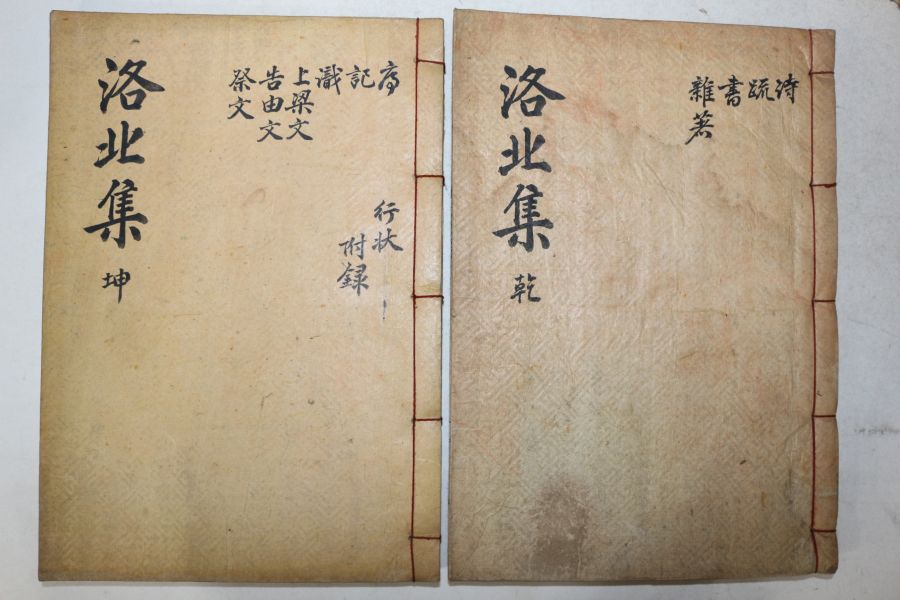 洛北集 乾
詩
疏
書
雜著
洛北集 坤
序
記
識
上梁文
告由文
祭文
行狀
附録